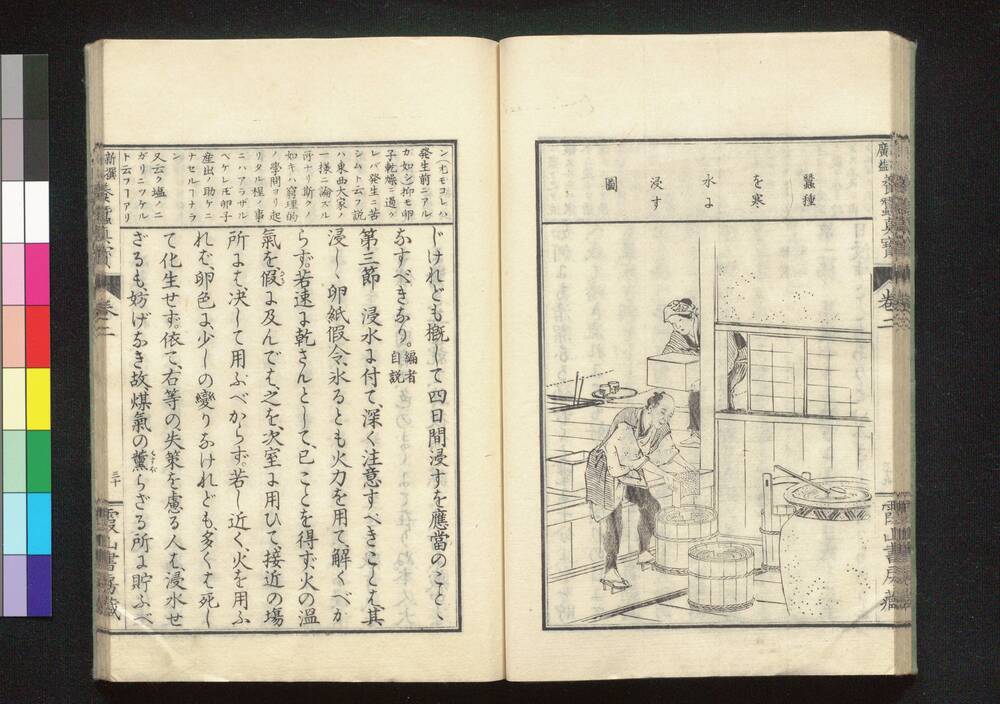 廣益
養蠶真寶
卷二
霞山書房藏
蠶種
を寒
水に
浸す
圖
ン(尤モコレハ
発生前ニアル
カ如シ)抑モ卵
子乾燥ニ過グ
レバ発生ニ苦
シムト云フ説
ハ東西大家ノ
一様ニ論ズル
所ナリ斯クノ
如キハ窮理的
ノ學問ヨリ起
リタル程ノ事
ニハアラザル
ベケレ𪜈卵子
産出ノ助ケニ
ナセルヿナラ
ン
又云ク塩ノニ
ガリニツケル
ト云フヿアリ
じけれども概して四日間浸すを應當のことゝ
なすべきなり。編者自説
第三節 浸水に付て、深く注意すべきことは、其
浸しゝ卵紙假令、氷るとも火力を用て、解くべか
らず。若速に乾さんとして、已ことを得ず、火の温
氣を假に及んでは、之を、次室に用ひて、接近の場
所には、决して用ふべからず。若し近く、火を用ふ
れば、卵色は、少しの變りなけれども、多くは死し
て化生せず。依て、右等の、失策を慮る人は、浸水せ
ざるも、妨げなき故、煤氣の薫らざる所に貯ふべ
新撰
養蠶真寶
卷二
三十
霞山書房藏